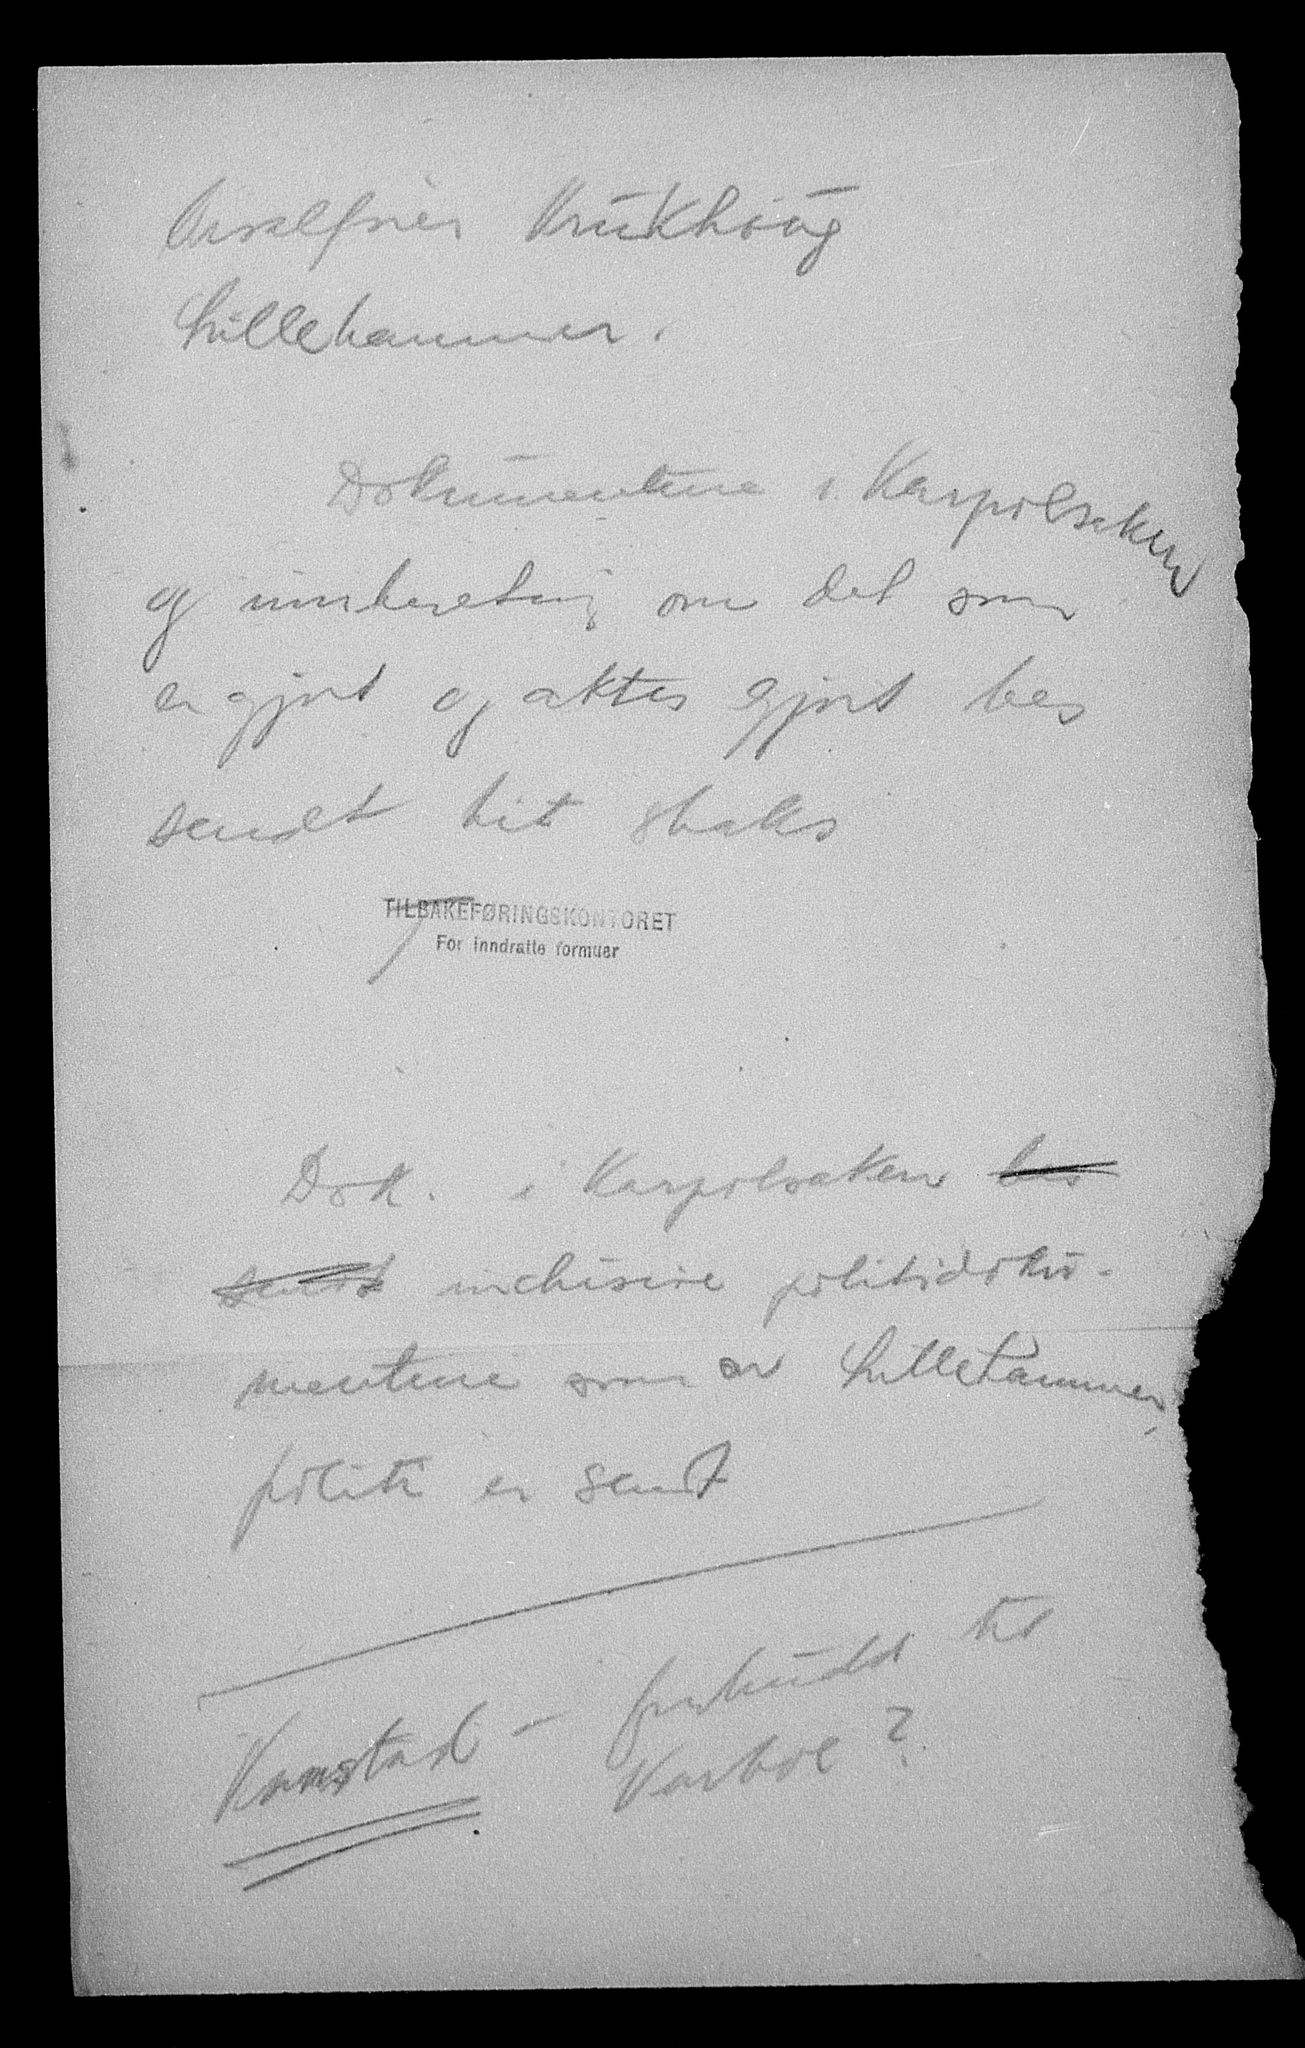 Krükhöug
Lillehammer.
Dokumentene i Karpolsaken
og innberetning om det som
er gjort og aktes gjort bes
sendt hit straks
TILBAKEFØRINGSKONTORET
For inndratte formuer
Dok. i Karpolsaken bes
sendt inclusive politidoku-
mentene som av Lillehammer
politi er sendt
Kornstad - forbudd til
Karbol ?